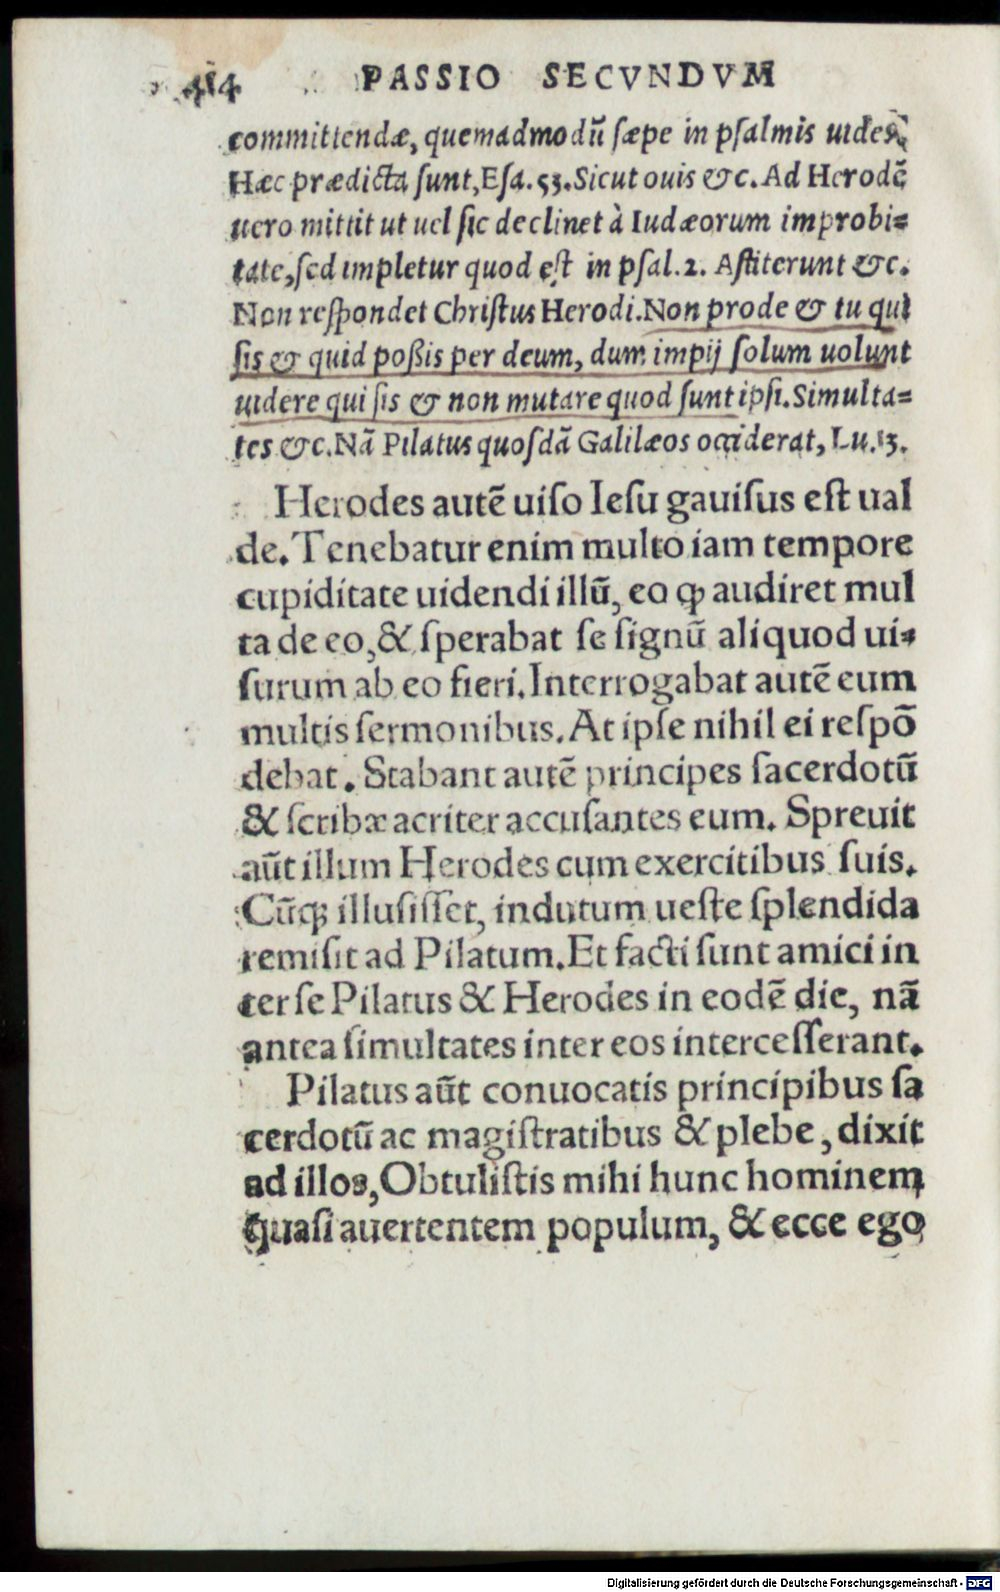 414 PASSIO SECVNDVM
committendæ, quemadmodũ ſæpe in pſalmis uides.
Hæc prædicta ſunt, Eſa. 53. Sicut ouis &c. Ad Herodẽ
uero mittit ut uel ſic declinet à Iudæorum improbi=
tate, ſed impletur quod eſt in pſal. 2. Aſtiterunt &c.
Non reſpondet Chriſtus Herodi. Non prode & tu qui
ſis & quid poßis per deum, dum impij ſolum uolunt
uidere qui ſis & non mutare quod ſunt ipſi. Simulta=
tes &c. Nã Pilatus quoſdã Galilæos occiderat, Lu. 13.
Herodes autẽ uiſo Ieſu gauiſus eſt ual
de. Tenebatur enim multo iam tempore
cupiditate uidendi illũ, eo ꝙ audiret mul
ta de eo, & ſperabat ſe ſignũ aliquod ui=
ſurum ab eo fieri. Interrogabat autẽ eum
multis ſermonibus. At ipſe nihil ei reſpõ
debat. Stabant autẽ principes ſacerdotũ
& ſcribæ acriter accuſantes eum. Spreuit
aũt illum Herodes cum exercitibus ſuis.
Cũꝙ illuſiſſet, indutum ueſte ſplendida
remiſit ad Pilatum. Et facti ſunt amici in
ter ſe Pilatus & Herodes in eodẽ die, nã
antea ſimultates inter eos interceſſerant.
Pilatus aũt conuocatis principibus ſa
cerdotũ ac magiſtratibus & plebe, dixit
ad illos, Obtuliſtis mihi hunc hominem
quaſi auertentem populum, & ecce ego
Digitalisierung gefördert durch die Deutsche Forschungsgemeinschaft - DFG